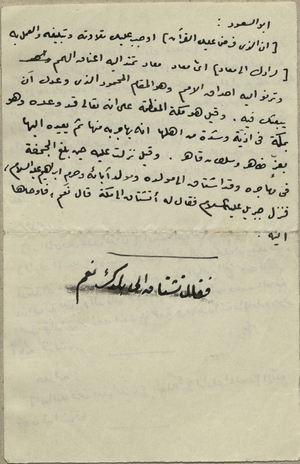 ابو السعود :
[ان الذي فرض عليك القرآن] اوجب عليك تلاوته وتبليغه والعمل به
[لرادك الى معاد] اىّ معاد معاد تمتد اليه اعناق الهمم
وترنو اليه احداق الامم وهو المقام المحمود الذي وعدك أن
يبعثك فيه . وقيل هو مكة المعظمة على انه تعالى قد وعده وهو
بمكة في اذية وشدة من اهلها انه يهاجر به منها ثم يعيده اليها
بعزّ ظاهر وسلطان قاهر . وقيل نزلت عليه حين بلغ الجحفة
في مهاجره وقد اشتاق الى مولده ومولد آبائه وحرم ابراهيم عليه السلام،
فنزل جبريل عليه السلام فقال له أتشتاق الى مكة قال نعم، فأوحاها
اليه .
فقال تشتاق الى بلدك نعم